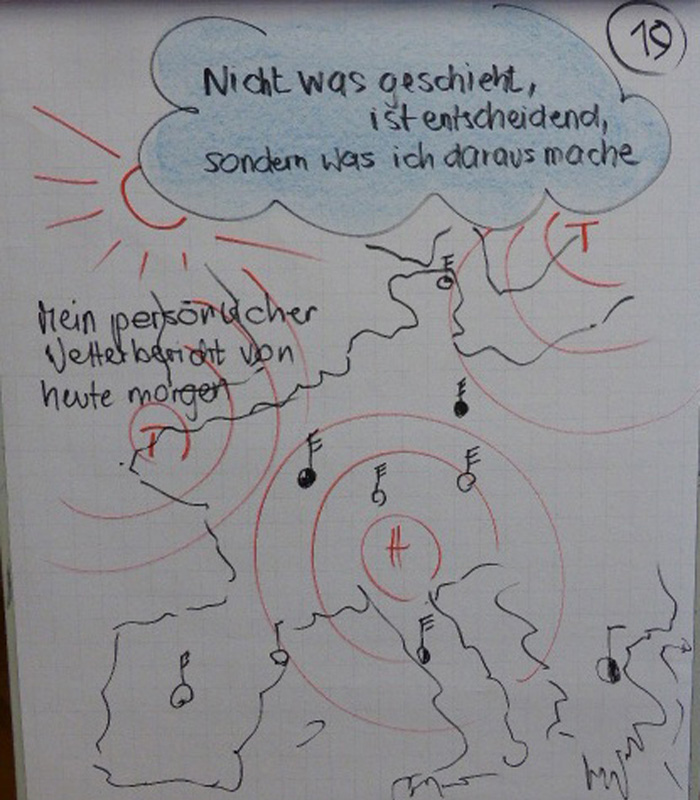 19
Nicht was geschieht,
ist entscheidend,
sondern was ich daraus mache
T
Mein persönlicher
Wetterbericht von
heute morgen
T
H